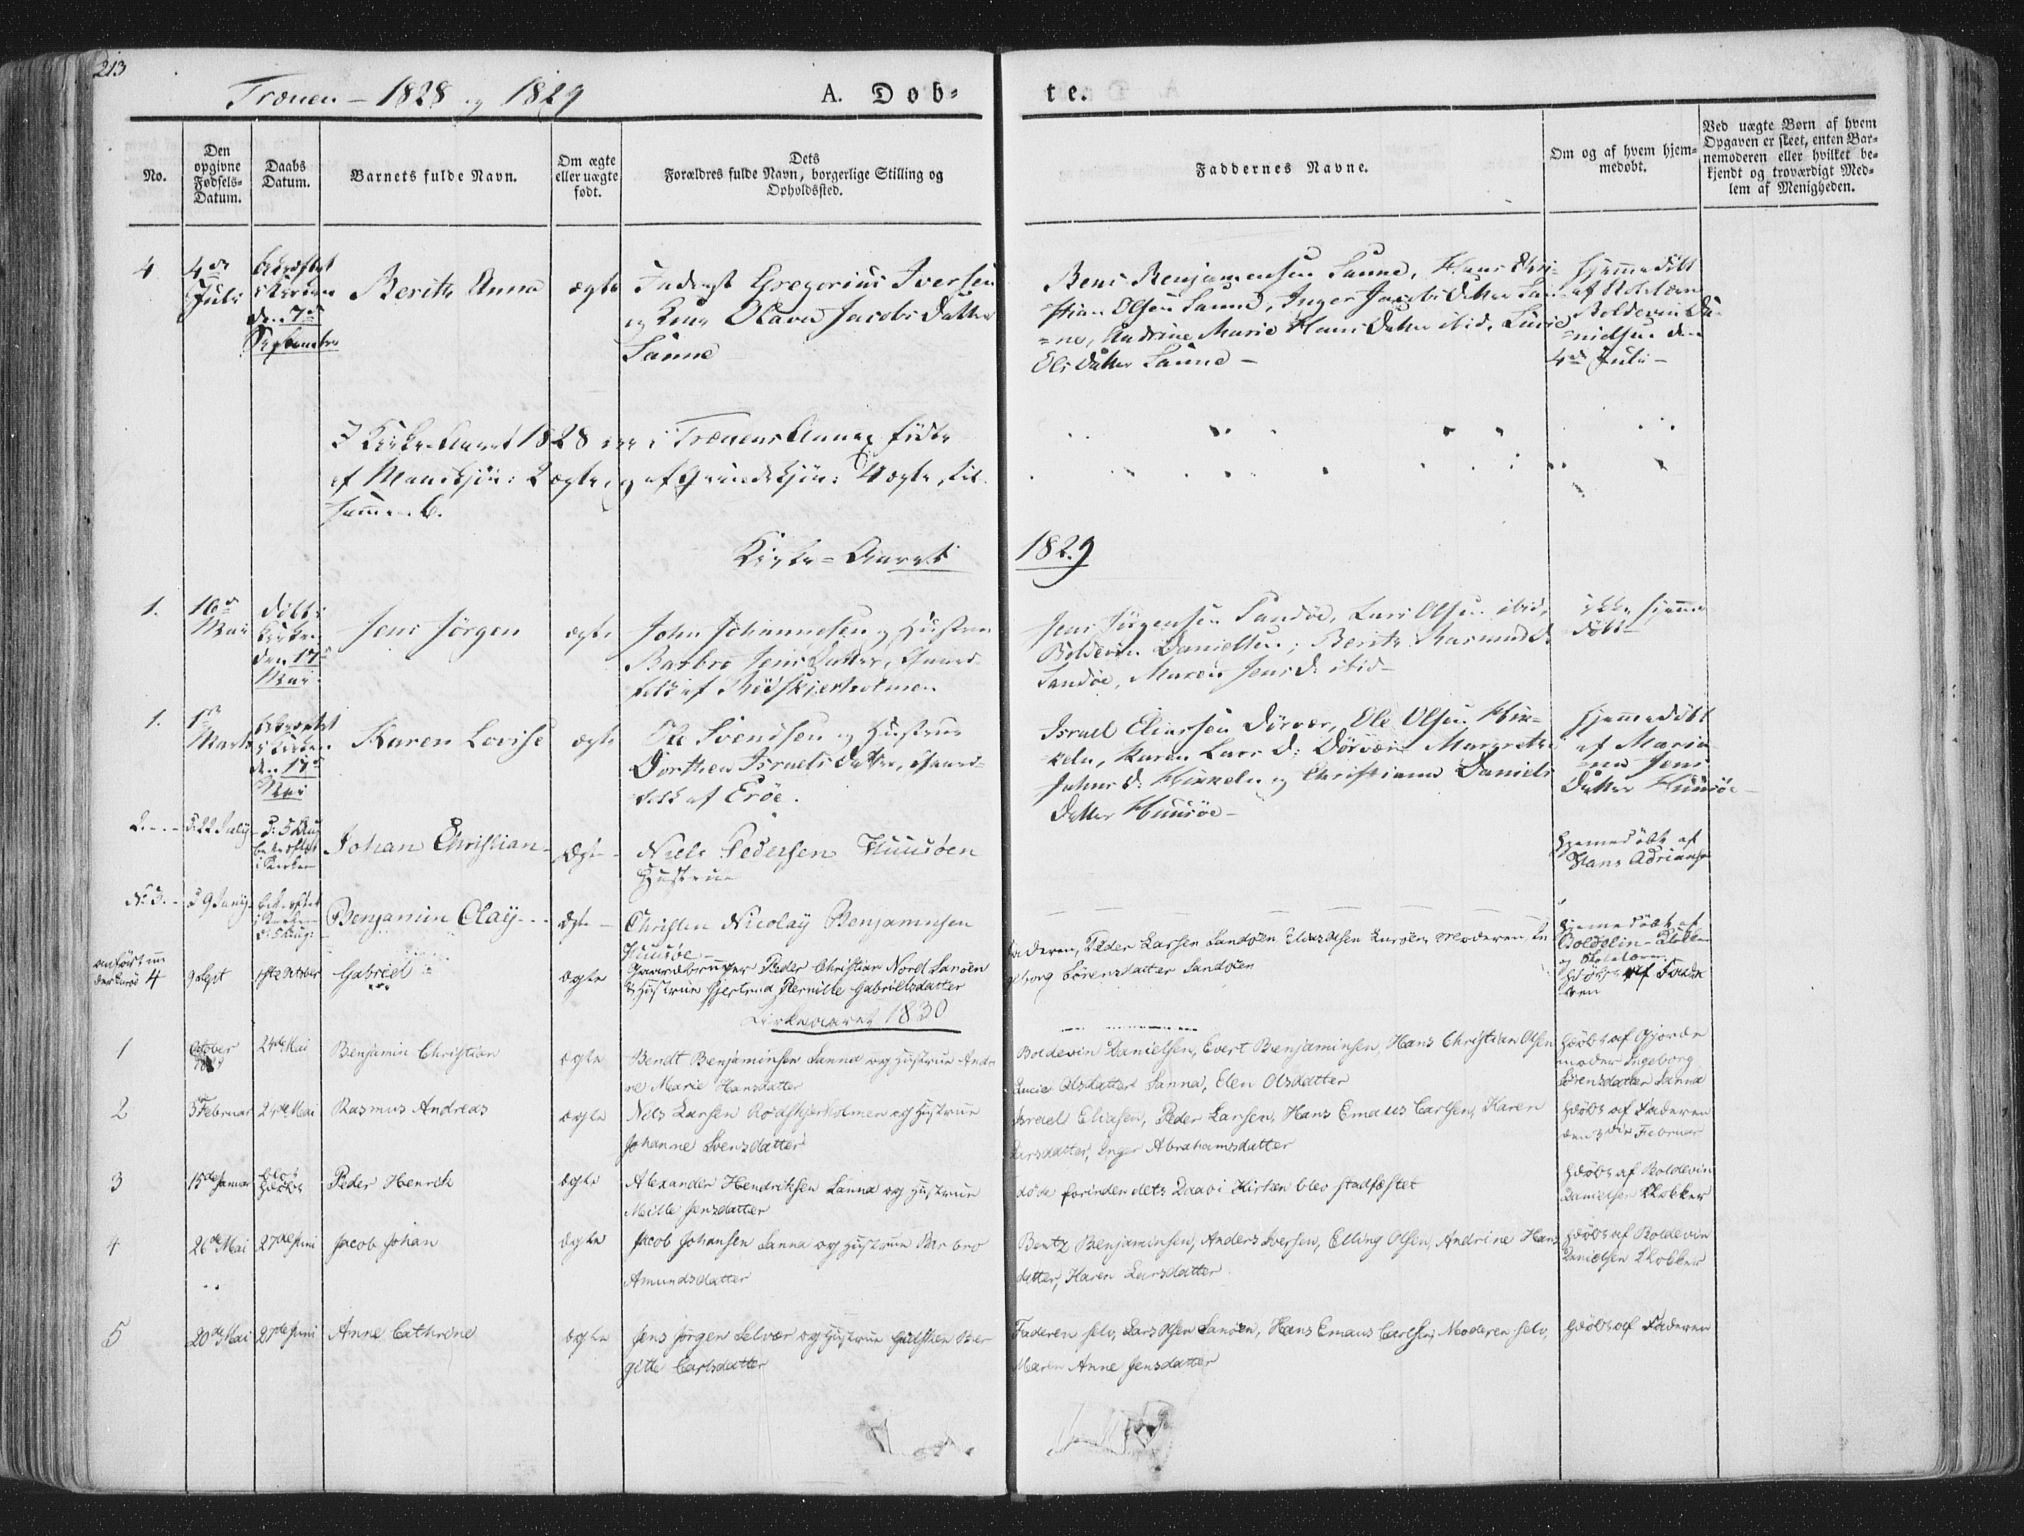 213
Trænen – 1828 og 1829
A. Døb-
te.
No.
Den
opgivne
Fødsels-
Datum.
Daabs
Datum.
Barnets fulde Navn.
Om ægte
eller uægte
født.
Dets
Forældres fulde Navn, borgerlige Stilling og
Opholdssted.
Faddernes Navne.
Om og af hvem hjem-
medøbt.
Ved uægte Børn af hvem
Opgaven er skeet, enten Bar-
nemoderen eller hvilket be-
kjendt og troværdigt Med-
lem af Menigheden.
4
4de
Juli
bekræftet
i Kirken
den 7de
September
Berith Anna
ægte
Gregorius Iversen
og Olava Jacobs Datter
Sanne
Bens Benjamensen Sanne, Hans Chri-
stian Olsen Sanne, Inger Jacobs Datter San-
ne, Andrine Marie Hans Datter ibid, Lucie
Ols Datter Sanne –
Hjemmedøbt
af
Boldevin Da-
nielsen den
4de Juli –
I Kirke-Aaret 1828 ere i Trænens Annex fødte
af Mandkjøn: 2 ægte, og af Qvindekjøn: 4 ægte, til-
sammen 6.
Kirke-Aaret
1829
1.
16de
Mai
døbt i
Kirken
den 17de
Mai
Jens Jörgen
ægte
John Johannesen og Hustru
Barbro Jens Datter,
folk af Rödskjærholmen
Jens Jörgensen Sandöe, Lars Olsen ibid,
Boldevin Danielsen, Berith Rasmus D.
Sandöe, Maren Jens D. ibid –
ikke hjemme-
døbt
1.
1ste
Marts
bekræftet
i Kirken
den 17de
Mai
Karen Lovise
ægte
Ole Svendsen og Hustrue
Dorthea Israels Datter,
folk af Eröe.
Israel Eliassen Dörvær, Ole Olsen Hik-
keln, Karen Lars D: Dörvær, Margrethe
Johns D: Hikkeln og Christiana Daniels
Datter Huusöe –
Hjemmedøbt
af Maria-
na Jens
Datter Huusöe –
2
d: 22 July
d: 5 Aug
bekræftet
i Kirken
Johan Christian
Ægte
Niels Pedersen Huusöen
Hustrue
Hjemmedöbt af
Hans Adriansen
No 3
d 9 Juny
bekræftet
i Kirken
d: 5 Aug:
Benjamin Olay
Ægte
Christen Nicolay Benjaminsen
Huusöe
Hjemmedöbt af
Boldevin Klokker
og Skolelærer
anført un
der Lurøe 4
9 Sept
1ste October
Gabriel
ægte
Gaardbruger Peder Christian Nord Sanöen
& Hustrue Gjertrud Pernille Gabrielsdatter
Faderen, Peder Larsen Sandöen Elias Olsen Lurøen, Moderen, In
geborg Sørensdatter Sandöen
Hdøbt af Fade
ren
Kirkeaaret 1830
1
October
1829
24de Mai
Benjamin Christian
ægte
Bendt Benjaminsen Sanna og Hustrue Andri
ne Marie Hansdatter
Boldevin Danielsen, Evert Benjaminsen, Hans Christian Olsen
Lucia Olsdatter Sanna, Elen Olsdatter
Hdøbt af Gjorde
moder Ingeborg
Sørensdatter Sanna
2
3de Februar
24de Mai
Rasmus Andreas
ægte
Nils Larsen Rødskjærholmen og Hustrue
Johanne Svensdatter
Israel Eliasen, Peder Larsen, Hans Emaus Carlsen, Karen
Larsdatter, Inger Abrahamsdatter
Hdøbt af Faderen
den 3die Februar
3
15de Januar
blot
Hdøbt
Peder Henrik
ægte
Alexander Hendriksen Sanna og Hustrue
Mille Jensdatter
døde forinden dets Daab i Kirken blev stadfæstet
Hdøbt af Boldevin
Danielsen Klokker
4
26de Mai
27de Juni
Jacob Johan
ægte
Jacob Johansen Sanna og Hustrue Barbro
Amundsdatter
Bentz Benjaminsen, Anders Iversen, Elling Olsen, Andrine Hans
datter, Karen Larsdatter
Hdøbt af Boldevin
Danielsen Klokker
5
20de Mai
27de Juni
Anne Cathrine
ægte
Jens Jørgen Selvær og Hustrue Gulshen Ber
gitte Carlsdatter
Faderen selv, Lars Olsen Sanöen, Hans Emaus Carlsen, Moderen selv,
Maren Anne Jensdatter
Hdøbt af Faderen